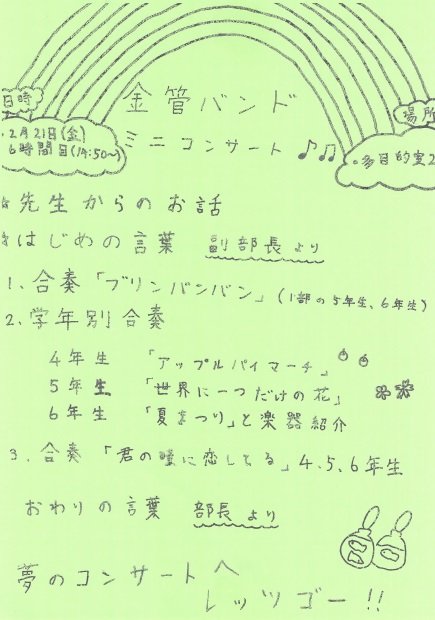 金管バンド
ミニコンサート♪♫
日時
・2月21日(金)
6時間目(14:50〜)
場所
・多目的室2
☆先生からのお話
☆はじめの言葉 副部長より
1. 合奏「ブリンバンバン」(1部の5年生、6年生)
2. 学年別合奏
4年生 「アップルパイマーチ」
5年生 「世界に一つだけの花」
6年生 「夏まつり」と楽器紹介
3. 合奏 「君の瞳に恋してる」4.5.6年生
おわりの言葉 部長より
夢のコンサートへ
レッツゴー!!